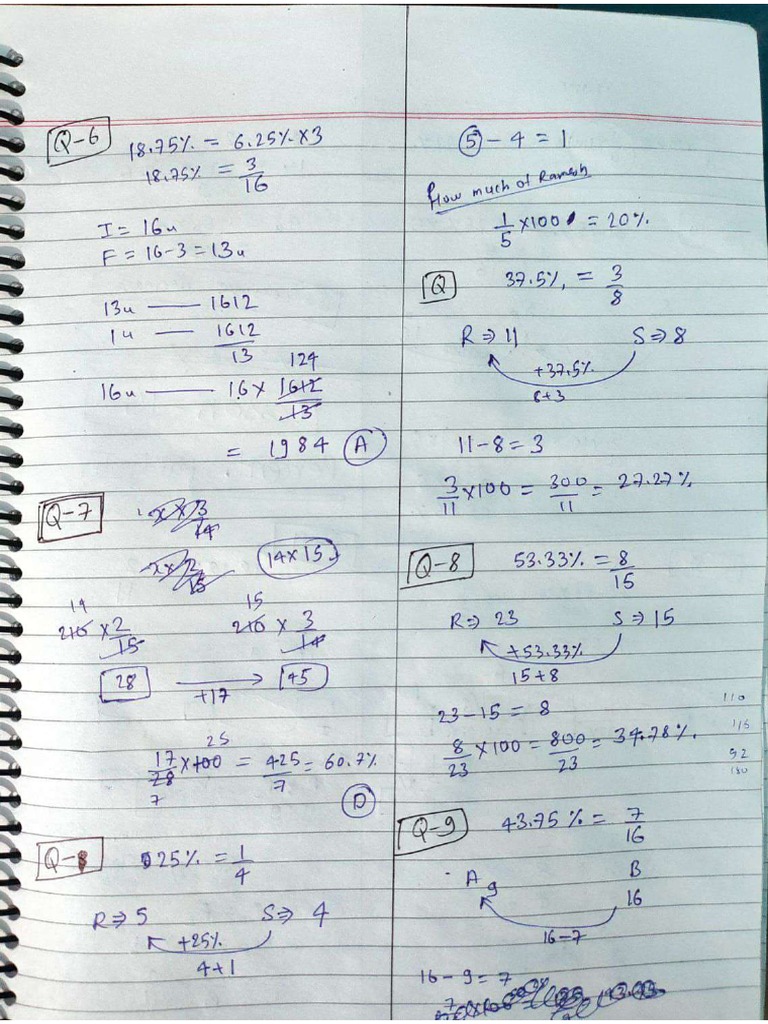 Q-6
18.75% = 6.25% × 3
18.75% = 3/16
I = 16u
F = 16-3 = 13u
13u —— 1612
1u —— 1612/13
124
16u —— 16 × 1612/13
= 1984 (A)
Q-7
x × 3/14
14×15
14
210 × 2/15
15
210 × 3/14
28 → 45
+17
25
17/28 × 100 = 425/7 = 60.7%
7
(D)
Q-8
25% = 1/4
R ⇒ 5 S ⇒ 4
+25%
4+1
5 - 4 = 1
How much of Ramesh
1/5 × 100 = 20%
Q
37.5% = 3/8
R ⇒ 11 S ⇒ 8
+37.5%
8+3
11-8 = 3
3/11 × 100 = 300/11 = 27.27%
Q-8
53.33% = 8/15
R ⇒ 23 S ⇒ 15
+53.33%
15+8
23-15 = 8
8/23 × 100 = 800/23 = 34.78%
110
115
92
180
Q-9
43.75% = 7/16
A B
9 16
16-7
16-9 = 7